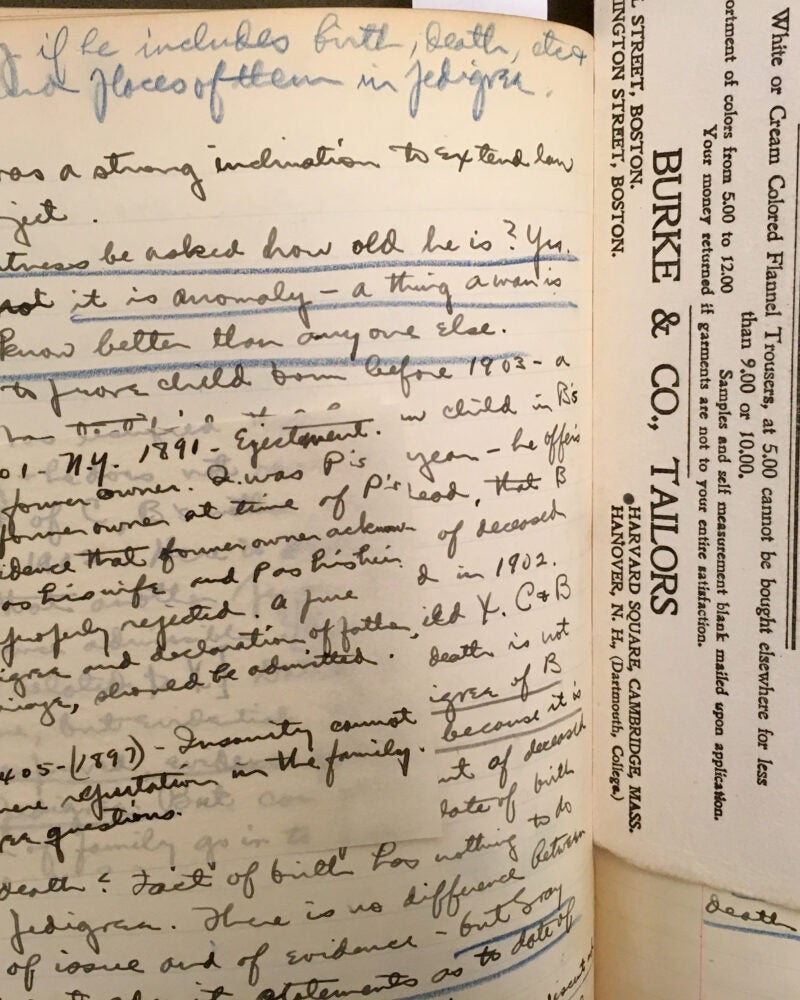 if he includes birth, death, etc
and places of them in pedigree.
was a strong inclination to extend law
ject.
itness be asked how old he is? Yes.
not it is anomaly – a thing a man is
know better than anyone else.
to prove child born before 1903 – a
has
01 – N.Y. 1891 – Ejectment.
former owner. Q. was P's
former owner at time of P's
idence that former owner acknow
as his wife and P as his heir.
properly rejected. A pure
igree and declaration of father,
riage, should be admitted.
405 – (1897) – Insanity cannot
mere reputation in the family.
ree questions.
child in B's
year – he offers
lead, that B
of deceased
d in 1902.
ild X. C & B
death is not
igree of B
because it is
nt of deceased
date of birth
death? "Fact" of birth has nothing to do
Pedigree. There is no difference between
of issue and of evidence – but Gray
statements as to date of
death
White or Cream Colored Flannel Trousers, at 5.00 cannot be bought elsewhere for less
than 9.00 or 10.00.
ortment of colors from 5.00 to 12.00 Samples and self measurement blank mailed upon application.
Your money returned if garments are not to your entire satisfaction.
BURKE & CO., TAILORS
L STREET, BOSTON. HARVARD SQUARE, CAMBRIDGE, MASS.
INGTON STREET, BOSTON. HANOVER, N. H., (Dartmouth, College.)